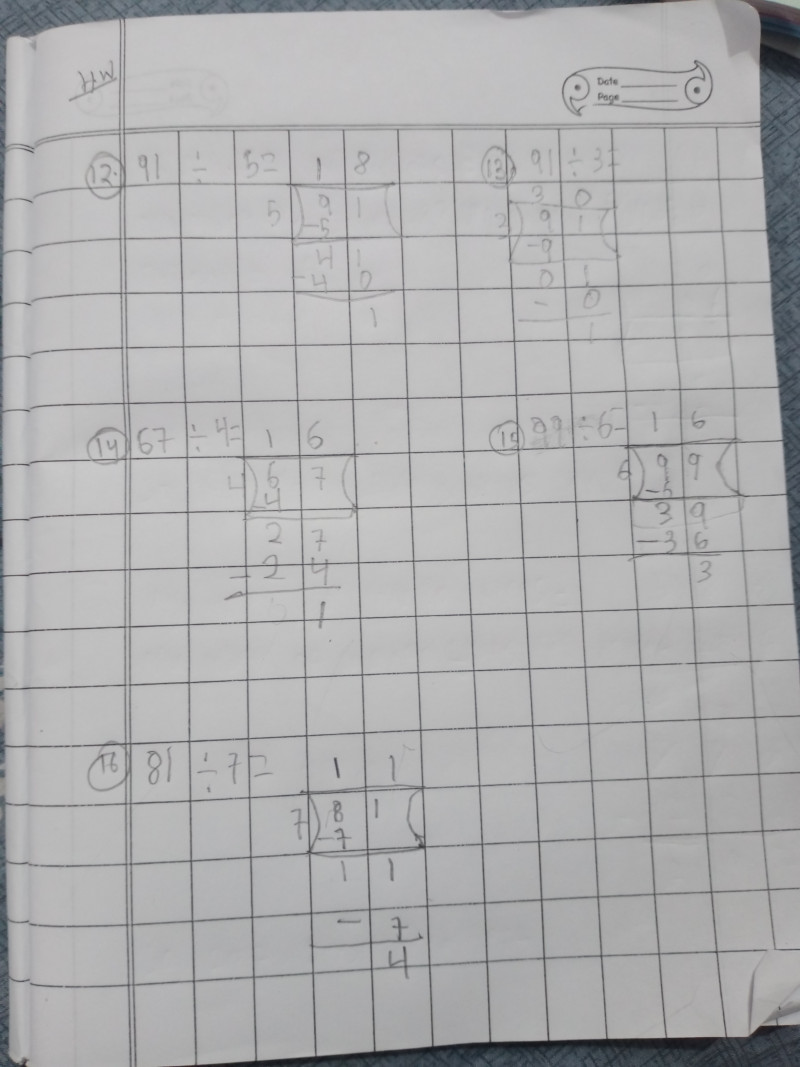 HW
Date
Page
12. 91 ÷ 5= 1 8
5) 9 1 (
-5
4 1
-4 0
1
13. 91 ÷ 3=
3 0
3) 9 1 (
-9
0 1
- 0
1
14 67 ÷ 4= 1 6
4) 6 7 (
4
2 7
-2 4
1
15 99 ÷ 6= 1 6
6) 9 9 (
3 9
-3 6
3
16 81 ÷ 7= 1 1
7) 8 1 (
-7
1 1
- 7
4